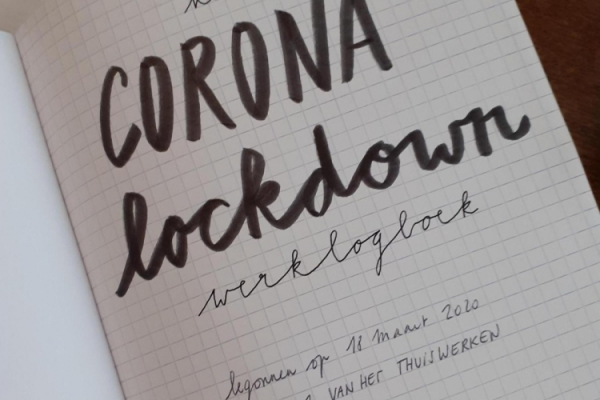 CORONA
lockdown
werklogboek
begonnen op 18 maart 2020
VAN HET THUISWERKEN